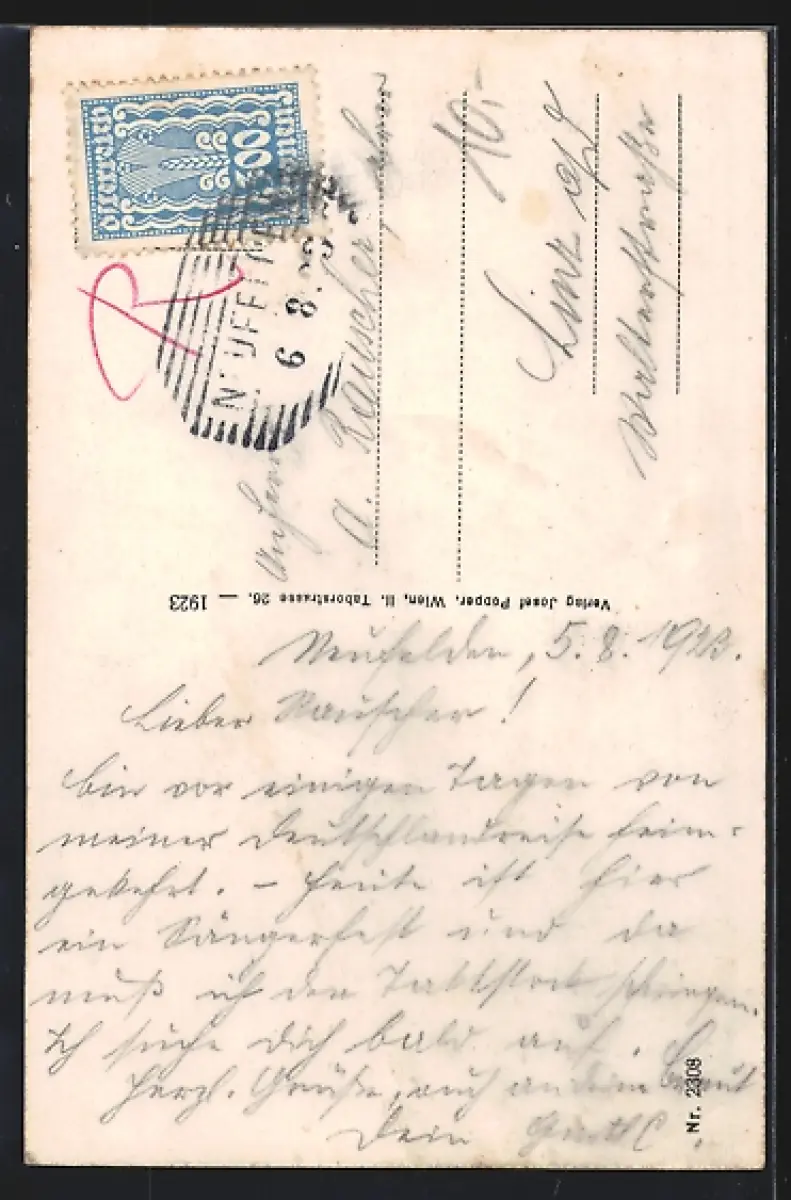 Österreich
300
Kronen
NEUFEL
6 8. 23
R
10,-
A. Rauscher
Linz a/D
Verlag Josef Popper, Wien, II. Taborstrasse 26. — 1923
Neufelden, 5. 8. 1923.
Lieber Rauscher!
bin vor einigen Tagen von
meiner Deutschlandreise heim-
gekehrt. – Heute ist hier
ein Sängerfest und da
muß ich den Taktstock schwingen.
Ich suche Dich bald auf.
Herzl. Grüße, auch an Deine Braut
Dein
Nr. 2308